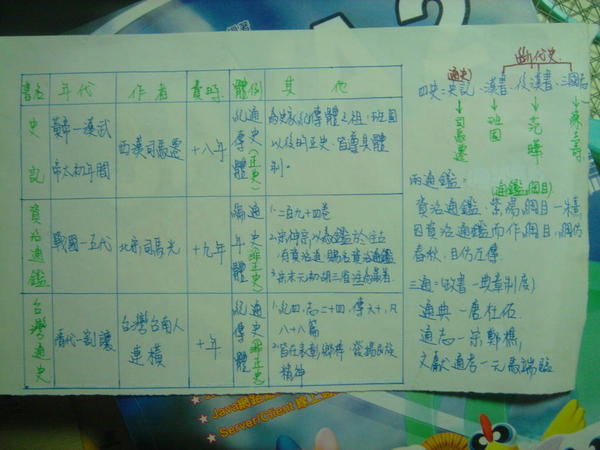 書名 年代 作者 費時 體例 其他
史記
黃帝—漢武帝太初年間
西漢司馬遷
十八年
紀傳體
通史(正史)
為史家紀傳體之祖,班固
以後的正史,皆尊其體
制。
資治通鑑
戰國—五代
北宋司馬光
十九年
編年體
通史(非正史)
1.二百九十四卷
2.宋神宗以為鑑於往古
有資治道,賜名資治通鑑
3.宋末元初胡三省注為最著
台灣通史
隋代—割讓
台灣台南人
連橫
十年
紀傳體
通史(非正史)
1.紀四、志二十四、傳六十,凡
八十八篇
2.旨在表彰鄉梓,發揚民族
精神
斷代史
(通史)
四史:史記、漢書、後漢書、三國志
司馬遷 班固 范曄 陳壽
兩通鑑: (通鑑綱目)
資治通鑑、紫陽綱目—朱熹
因資治通鑑而作綱目,綱仿
春秋,目仿左傳
三通:(政書—典章制度)
通典—唐杜佑
通志—宋鄭樵
文獻通考—元馬端臨
Java網路
Server/Client 線上